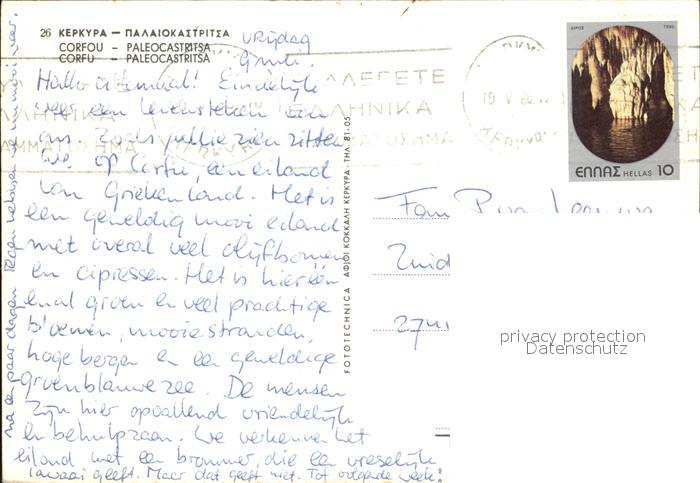 26 ΚΕΡΚΥΡΑ – ΠΑΛΑΙΟΚΑΣΤΡΙΤΣΑ
CORFOU - PALEOCASTRITSA
CORFU - PALEOCASTRITSA
vrijdag
Hallo allemaal! Eindelijk
weer een levensteken van
ons. Zoals jullie zien zitten
we op Corfu, een eiland
van Griekenland. Het is
een geweldig mooi eiland
met overal veel olijfbomen
en cipressen. Het is hier één
en al groen en veel prachtige
bloemen, mooie stranden,
hoge bergen en een geweldige
groenblauwe zee. De mensen
zijn hier opvallend vriendelijk
en behulpzaam. We verkennen het
eiland met een brommer, die een vreselijk
lawaai geeft. Maar dat geeft niet. Tot volgende week!
na een paar dagen regen hebben we nu mooi weer.
FOTOTECHNICA ΑΦΙΟΙ ΚΟΚΚΑΛΗ ΚΕΡΚΥΡΑ - ΤΗΛ. 81-05
ΑΛΕΓΕΤΕ
ΕΛΛΗΝΙΚΑ
ΓΡΑΜΜΑΤΟΣΗΜΑ
19 V 80
1980
ΕΛΛΑΣ HELLAS 10
Fam
Zuid
27
privacy protection
Datenschutz